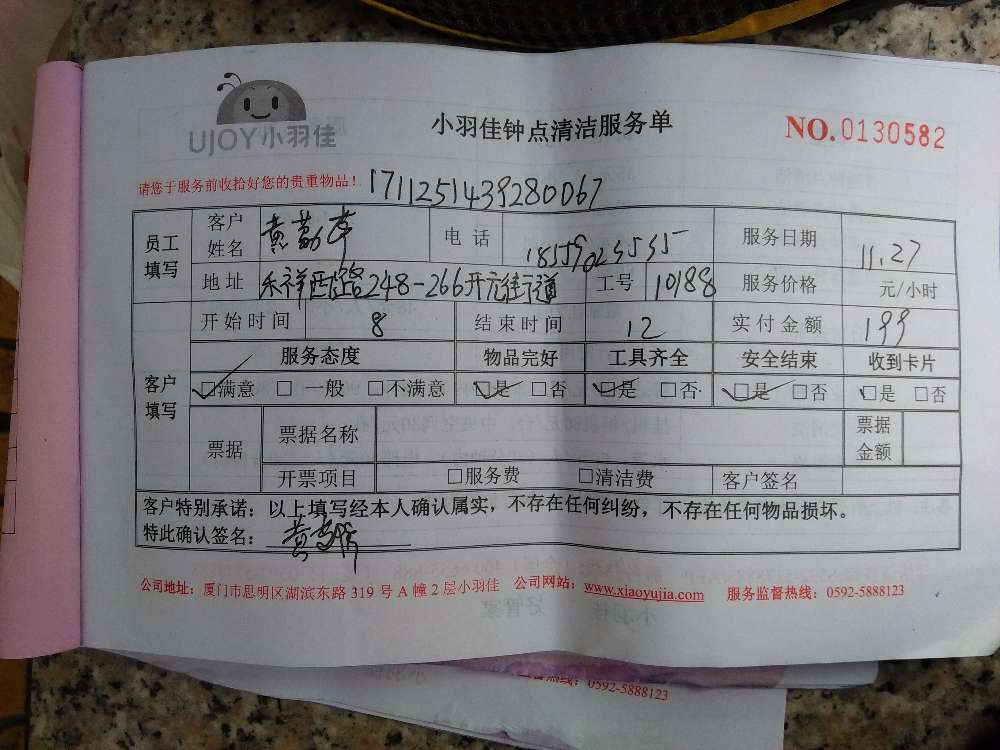 UJOY小羽佳
小羽佳钟点清洁服务单
NO.0130582
请您于服务前收拾好您的贵重物品！
1711251439280067
员工填写 客户姓名 电话 18559023535 服务日期 11.27
地址 禾祥西路248-266开元街道 工号 10188 服务价格 元/小时
开始时间 8 结束时间 12 实付金额 199
客户填写 服务态度 物品完好 工具齐全 安全结束 收到卡片
☑满意 □一般 □不满意 ☑是 □否 ☑是 □否 ☑是 □否 ☑是 □否
票据 票据名称 票据金额
开票项目 □服务费 □清洁费 客户签名
客户特别承诺：以上填写经本人确认属实，不存在任何纠纷，不存在任何物品损坏。
特此确认签名：
公司地址：厦门市思明区湖滨东路 319 号 A 幢 2 层小羽佳 公司网站：www.xiaoyujia.com 服务监督热线：0592-5888123
热线：0592-5888123